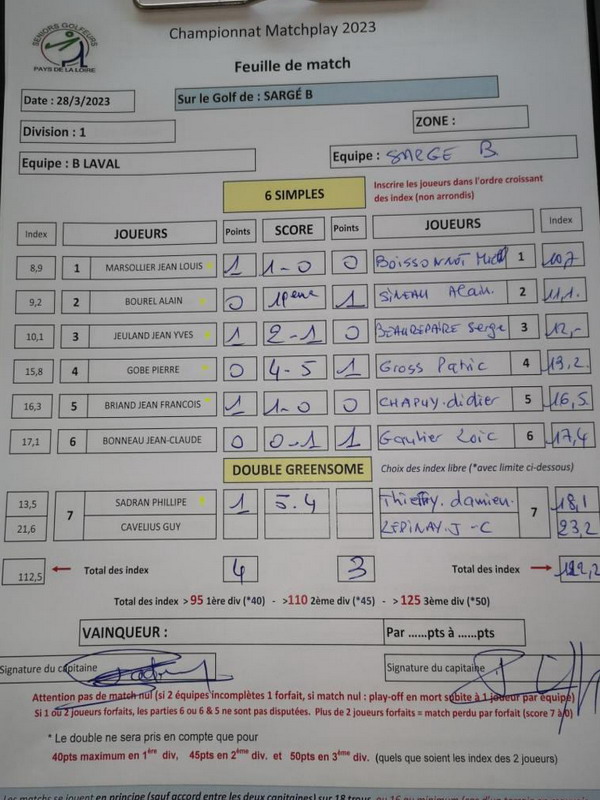 SENIORS GOLFEURS
PAYS DE LA LOIRE
Championnat Matchplay 2023
Feuille de match
Date : 28/3/2023
Sur le Golf de : SARGÉ B
Division : 1
ZONE :
Equipe : B LAVAL
Equipe : SARGE B.
6 SIMPLES
Inscrire les joueurs dans l'ordre croissant
des index (non arrondis)
Index JOUEURS Points SCORE Points JOUEURS Index
8,9 1 MARSOLLIER JEAN LOUIS 1 1-0 0 BOISSONNOT 1 10,7
9,2 2 BOUREL ALAIN 0 19eme 1 SINEAU Alain. 2 11,1.
10,1 3 JEULAND JEAN YVES 1 2-1 0 BEAUREPAIRE Serge 3 12,-
15,8 4 GOBE PIERRE 0 4-5 1 Gross Patric 4 13,2.
16,3 5 BRIAND JEAN FRANCOIS 1 1-0 0 CHAPUY.didier 5 16,5
17,1 6 BONNEAU JEAN-CLAUDE 0 0-1 1 Gaulier Loic 6 17,4
DOUBLE GREENSOME
Choix des index libre (*avec limite ci-dessous)
13,5 7 SADRAN PHILLIPE 1 5.4 Thieffry. damien. 7 18,1
21,6 CAVELIUS GUY LEPINAY.J-C 23,2
112,5 Total des index 4 3 Total des index 122,2
Total des index > 95 1ère div (*40) - >110 2ème div (*45) - > 125 3ème div (*50)
VAINQUEUR :
Par ......pts à ......pts
Signature du capitaine
Signature du capitaine
Attention pas de match nul (si 2 équipes incomplètes 1 forfait, si match nul : play-off en mort subite à 1 joueur par équipe)
Si 1 ou 2 joueurs forfaits, les parties 6 ou 6 & 5 ne sont pas disputées. Plus de 2 joueurs forfaits = match perdu par forfait (score 7 à 0)
* Le double ne sera pris en compte que pour
40pts maximum en 1ère div, 45pts en 2ème div. et 50pts en 3ème div. (quels que soient les index des 2 joueurs)
Les matchs se jouent en principe (sauf accord entre les deux capitaines) sur 18 trous, ou 16 au minimum